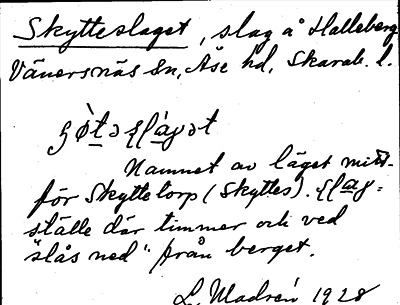 Skytteslaget, slag å Halleberg
Vänersnäs sn, Åse hd, Skarab. l.
Namnet av läget mitt-
för Skyttetorp (Skyttes).
ställe där timmer och ved
"slås ned" från berget.
L. Modéen 1928